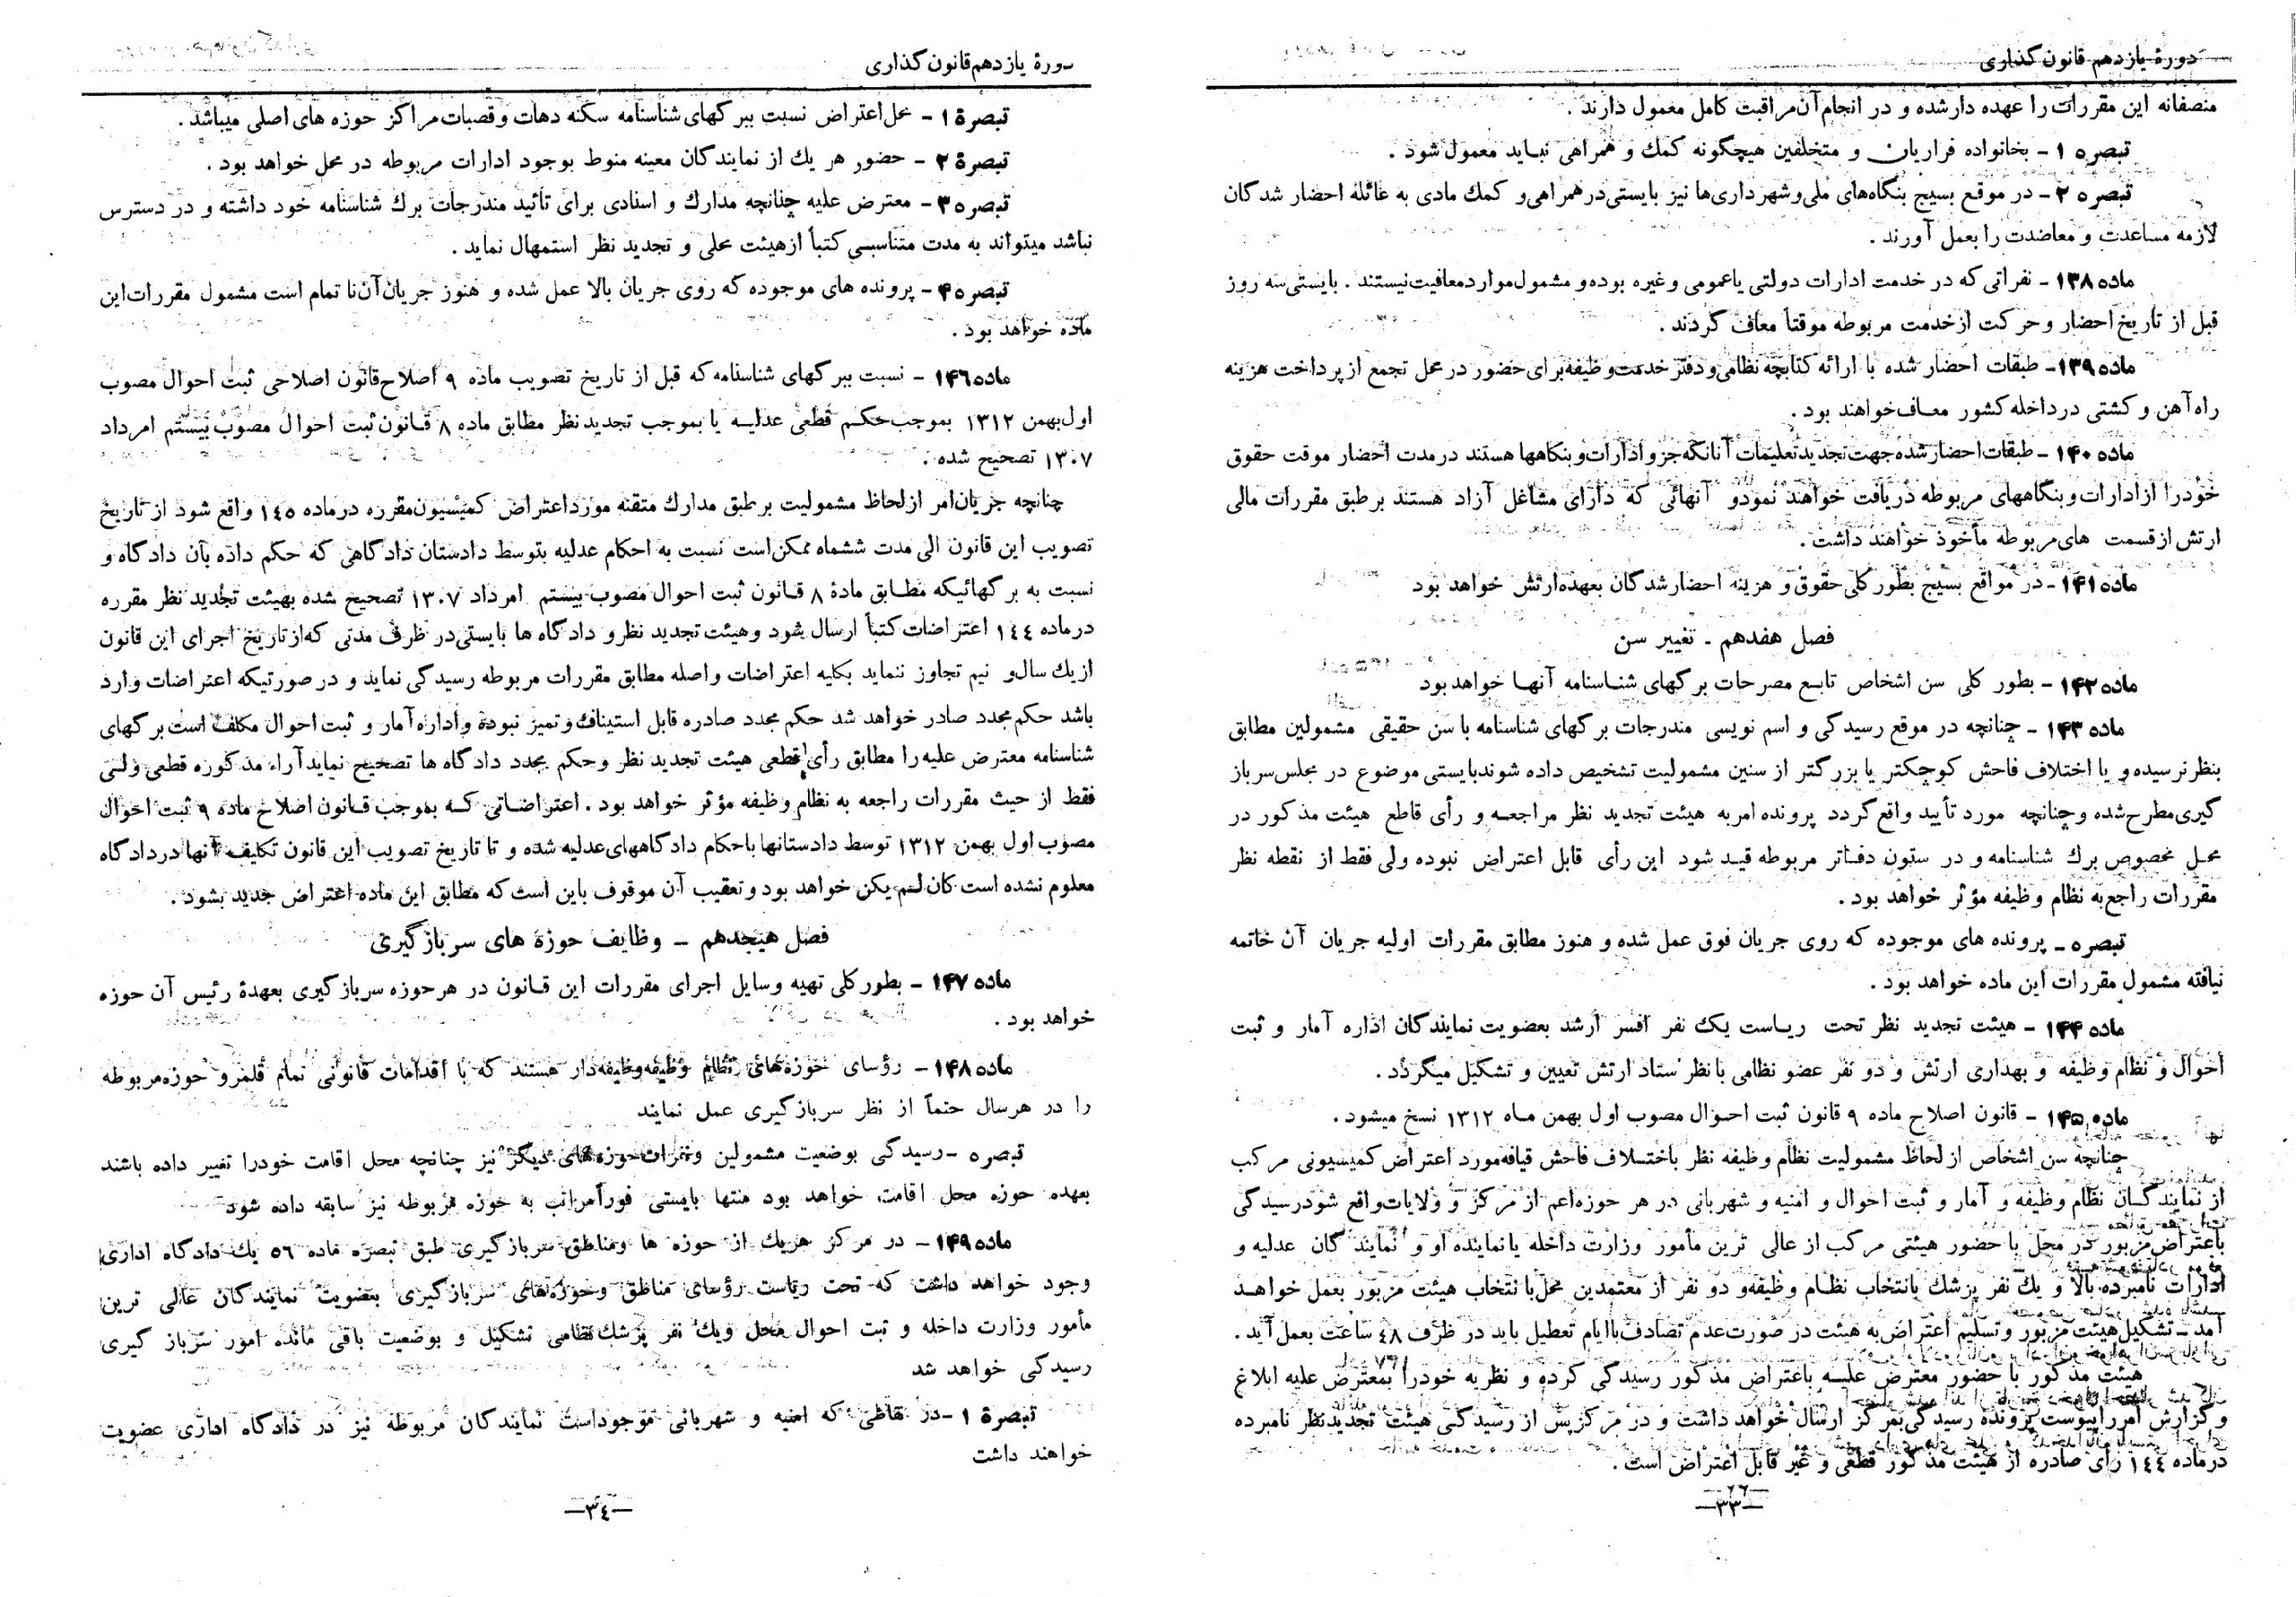 دورهٔ یازدهم قانون‌گذاری
منصفانه این مقررات را عهده دار شده و در انجام آن مراقبت کامل معمول دارند .
تبصره ۱ - بخانواده فراریان و متخلفین هیچگونه کمك و همراهی نباید معمول شود .
تبصره ۲ - در موقع بسیج بنگاه‌های ملی و شهرداری‌ها نیز بایستی در همراهی و کمك مادی به عائلهٔ احضار شدگان
لازمه مساعدت و معاضدت را بعمل آورند .
ماده ۱۳۸ - نفراتی که در خدمت ادارات دولتی یا عمومی و غیره بوده و مشمول موارد معافیت نیستند . بایستی سه روز
قبل از تاریخ احضار و حرکت از خدمت مربوطه موقتاً معاف گردند .
ماده ۱۳۹ - طبقات احضار شده با ارائه کتابچه نظامی و دفتر خدمت وظیفه برای حضور در محل تجمع از پرداخت هزینه
راه آهن و کشتی در داخله کشور معاف خواهند بود .
ماده ۱۴۰ - طبقات احضار شده جهت تجدید تعلیمات آنانکه جزو ادارات و بنگاهها هستند در مدت احضار موقت حقوق
خود را از ادارات و بنگاههای مربوطه دریافت خواهند نمود و آنهائی که دارای مشاغل آزاد هستند بر طبق مقررات مالی
ارتش از قسمت های مربوطه مأخوذ خواهند داشت .
ماده ۱۴۱ - در مواقع بسیج بطور کلی حقوق و هزینه احضار شدگان بعهده ارتش خواهد بود
فصل هفدهم - تغییر سن
ماده ۱۴۲ - بطور کلی سن اشخاص تابع مصرحات برگهای شناسنامه آنها خواهد بود
ماده ۱۴۳ - چنانچه در موقع رسیدگی و اسم نویسی مندرجات برگهای شناسنامه با سن حقیقی مشمولین مطابق
بنظر نرسیده و یا اختلاف فاحش کوچکتر یا بزرگتر از سنین مشمولیت تشخیص داده شوند بایستی موضوع در مجلس سرباز
گیری مطرح شده و چنانچه مورد تأیید واقع گردد پرونده امر به هیئت تجدید نظر مراجعه و رأی قاطع هیئت مذکور در
محل مخصوص برك شناسنامه و در ستون دفاتر مربوطه قید شود این رأی قابل اعتراض نبوده ولی فقط از نقطه نظر
مقررات راجع به نظام وظیفه مؤثر خواهد بود .
تبصره - پرونده های موجوده که روی جریان فوق عمل شده و هنوز مطابق مقررات اولیه جریان آن خاتمه
نیافته مشمول مقررات این ماده خواهد بود .
ماده ۱۴۴ - هیئت تجدید نظر تحت ریاست یك نفر افسر ارشد بعضویت نمایندگان اداره آمار و ثبت
احوال و نظام وظیفه و بهداری ارتش و دو نفر عضو نظامی با نظر ستاد ارتش تعیین و تشکیل میگردد .
ماده ۱۴۵ - قانون اصلاح ماده ۹ قانون ثبت احوال مصوب اول بهمن ماه ۱۳۱۲ نسخ میشود .
چنانچه سن اشخاص از لحاظ مشمولیت نظام وظیفه نظر باختلاف فاحش قیافه مورد اعتراض کمیسیونی مرکب
از نمایندگان نظام وظیفه و آمار و ثبت احوال و امنیه و شهربانی در هر حوزه اعم از مرکز و ولایات واقع شود رسیدگی
باعتراض مزبور در محل با حضور هیئتی مرکب از عالی ترین مأمور وزارت داخله یا نماینده او و نمایندگان عدلیه و
ادارات نامبرده بالا و یك نفر پزشك بانتخاب نظام وظیفه و دو نفر از معتمدین محل با نتخاب هیئت مزبور بعمل خواهد
آمد - تشکیل هیئت مزبور و تسلیم اعتراض به هیئت در صورت عدم تصادف با ایام تعطیل باید در ظرف ٤٨ ساعت بعمل آید .
هیئت مذکور با حضور معترض علیه باعتراض مذکور رسیدگی کرده و نظریه خود را بمعترض علیه ابلاغ
و گزارش امر را بپیوست پرونده رسیدگی بمرکز ارسال خواهد داشت و در مرکز پس از رسیدگی هیئت تجدید نظر نامبرده
در ماده ١٤٤ رأی صادره از هیئت مذکور قطعی و غیر قابل اعتراض است .
—۳۳—
دورهٔ یازدهم قانون‌گذاری
تبصرهٔ ۱ - محل اعتراض نسبت ببرگهای شناسنامه سکنه دهات و قصبات مراکز حوزه های اصلی میباشد .
تبصرهٔ ۲ - حضور هر یك از نمایندگان معینه منوط بوجود ادارات مربوطه در محل خواهد بود .
تبصره ۳ - معترض علیه چنانچه مدارك و اسنادی برای تأئید مندرجات برك شناسنامه خود داشته و در دسترس
نباشد میتواند به مدت متناسبی کتباً از هیئت محلی و تجدید نظر استمهال نماید .
تبصره ۴ - پرونده های موجوده که روی جریان بالا عمل شده و هنوز جریان آن نا تمام است مشمول مقررات این
ماده خواهد بود .
ماده ۱۴۶ - نسبت ببرگهای شناسنامه که قبل از تاریخ تصویب ماده ۹ اصلاح قانون اصلاحی ثبت احوال مصوب
اول بهمن ۱۳۱۲ بموجب حکم قطعی عدلیه یا بموجب تجدید نظر مطابق ماده ۸ قانون ثبت احوال مصوب بیستم امرداد
۱۳۰۷ تصحیح شده .
چنانچه جریان امر از لحاظ مشمولیت بر طبق مدارك متقنه مورد اعتراض کمیسیون مقرره در ماده ١٤٥ واقع شود از تاریخ
تصویب این قانون الی مدت ششماه ممکن است نسبت به احکام عدلیه بتوسط دادستان دادگاهی که حکم داده بآن دادگاه و
نسبت به برگهائیکه مطابق مادهٔ ۸ قانون ثبت احوال مصوب بیستم امرداد ۱۳۰۷ تصحیح شده بهیئت تجدید نظر مقرره
در ماده ١٤٤ اعتراضات کتباً ارسال شود و هیئت تجدید نظر و دادگاه ها بایستی در ظرف مدتی که از تاریخ اجرای این قانون
از یك سال و نیم تجاوز ننماید بکلیه اعتراضات واصله مطابق مقررات مربوطه رسیدگی نماید و در صورتیکه اعتراضات وارد
باشد حکم مجدد صادر خواهد شد حکم مجدد صادره قابل استیناف و تمیز نبوده و اداره آمار و ثبت احوال مکلف است برگهای
شناسنامه معترض علیه را مطابق رأی قطعی هیئت تجدید نظر و حکم مجدد دادگاه ها تصحیح نماید آراء مذکوره قطعی ولی
فقط از حیث مقررات راجعه به نظام وظیفه مؤثر خواهد بود . اعتراضاتی که بموجب قانون اصلاح ماده ۹ ثبت احوال
مصوب اول بهمن ۱۳۱۲ توسط دادستانها باحکام دادگاههای عدلیه شده و تا تاریخ تصویب این قانون تکلیف آنها در دادگاه
معلوم نشده است کان لم یکن خواهد بود و تعقیب آن موقوف باین است که مطابق این ماده اعتراض جدید بشود .
فصل هیجدهم - وظایف حوزه های سربازگیری
ماده ۱۴۷ - بطور کلی تهیه وسایل اجرای مقررات این قانون در هر حوزه سربازگیری بعهدهٔ رئیس آن حوزه
خواهد بود .
ماده ۱۴۸ - رؤسای حوزه‌های نظام وظیفه وظیفه‌دار هستند که با اقدامات قانونی تمام قلمرو حوزه مربوطه
را در هر سال حتماً از نظر سربازگیری عمل نمایند
تبصره - رسیدگی بوضعیت مشمولین و نفرات حوزه‌های دیگر نیز چنانچه محل اقامت خود را تغییر داده باشند
بعهده حوزه محل اقامت خواهد بود منتها بایستی فوراً مراتب به حوزه مربوطه نیز سابقه داده شود
ماده ۱۴۹ - در مرکز هر یك از حوزه ها و مناطق سربازگیری طبق تبصره ماده ٥٦ یك دادگاه اداری
وجود خواهد داشت که تحت ریاست رؤسای مناطق و حوزه‌های سربازگیری بعضویت نمایندگان عالی ترین
مأمور وزارت داخله و ثبت احوال محل و یك نفر پزشك نظامی تشکیل و بوضعیت باقی مانده امور سرباز گیری
رسیدگی خواهد شد
تبصرهٔ ۱ - در نقاطی که امنیه و شهربانی موجود است نمایندگان مربوطه نیز در دادگاه اداری عضویت
خواهند داشت
—٣٤—